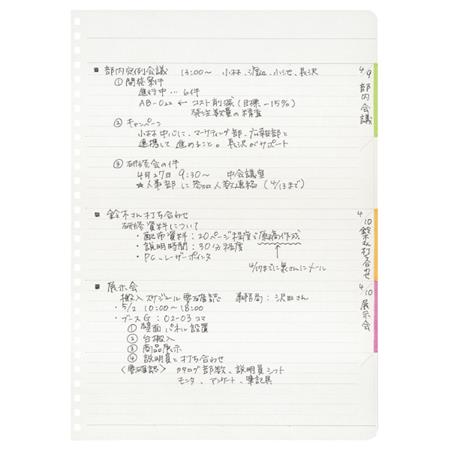 ■ 部内定例会議 13:00〜 小林、渡辺、小池、長沢
① 開発案件
進行中… 6件
AB-022 ← コスト削減(目標-15%)
発注数量の精査
② キャンペーン
小林中心に、マーケティング部、広報部と
連携して進めること。長沢がサポート
③ 研修会の件
4月27日 9:30〜 中会議室
★人事部に参加人数連絡(4/13まで)
■ 鈴木さん打ち合わせ
研修資料について
・配布資料:20ページ程度で原稿作成
・説明時間:30分程度
・PC、レーザーポインタ
4/17までに奥さんにメール
■ 展示会
搬入スケジュール要再確認 事務局:沢田さん
・5/2 10:00-18:00
・ブースG:02-03コマ
① 壁面パネル設置
② 台搬入
③ 商品展示
④ 説明員と打ち合わせ
〈要確認〉カタログ部数、説明員シフト
モニタ、アンケート、筆記具
4/9 部内会議
4/10 鈴木さん打ち合わせ
4/10 展示会